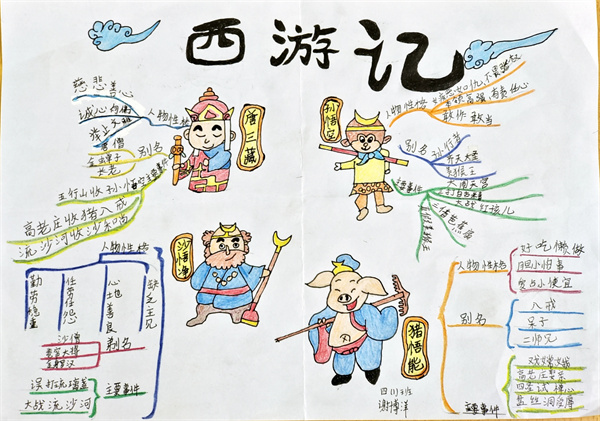 西游记
慈悲善心
诚心向佛
人物性格
唐三藏
唐僧
金蝉子
长老
别名
主要事件
五行山收孙悟空
高老庄收猪八戒
流沙河收沙和尚
孙悟空
人物性格
敢作敢当
别名
孙行者
齐天大圣
美猴王
主要事件
大闹天宫
三打白骨精
大战红孩儿
三借芭蕉扇
真假美猴王
沙悟净
人物性格
勤劳稳重
任劳任怨
心地善良
缺乏主见
别名
沙僧
卷帘大将
金身罗汉
主要事件
误打流璃盏
大战流沙河
猪悟能
人物性格
好吃懒做
胆小怕事
贪占小便宜
别名
八戒
呆子
二师兄
主要事件
戏嫦娥
高老庄娶亲
四圣试禅心
盘丝洞
四川班
谢博洋